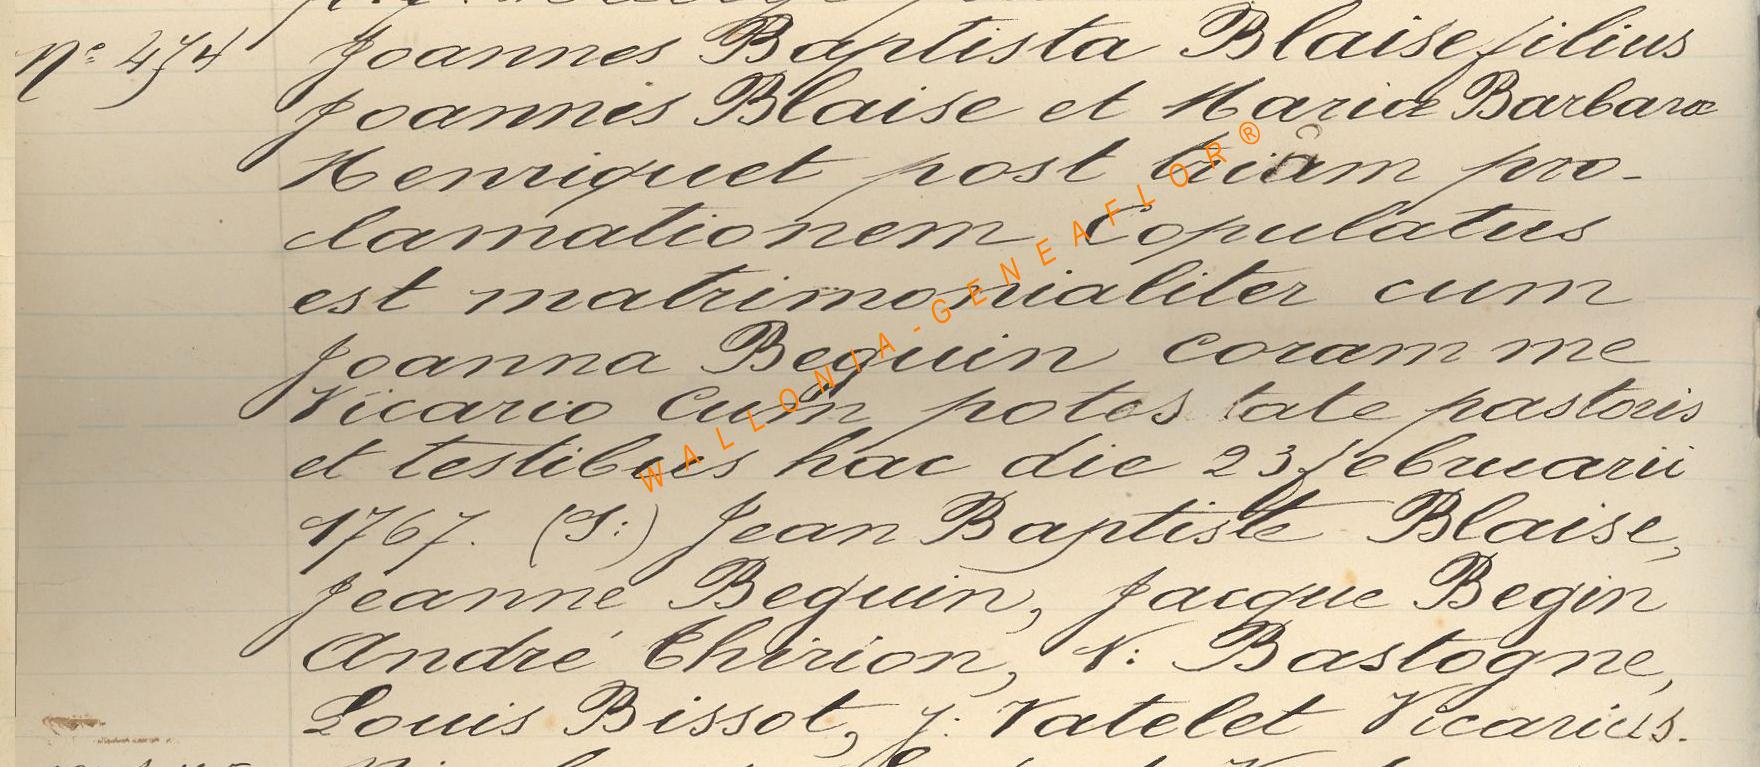 Nº 474 Joannes Baptista Blaise filius
Joannis Blaise et Mariæ Barbaræ
Henriquet post triam pro-
clamationem Copulatus
est matrimonialiter cum
Joanna Beguin coram me
Vicario Cum potes tate pastoris
et testibus hac die 23 februarii
1767. (S:) Jean Baptiste Blaise,
Jeanne Beguin, Jacque Begin
André Thirion, N: Bastogne,
Louis Bissot, J: Vatelet Vicarius.
WALLONIA-GENEAFLOR®